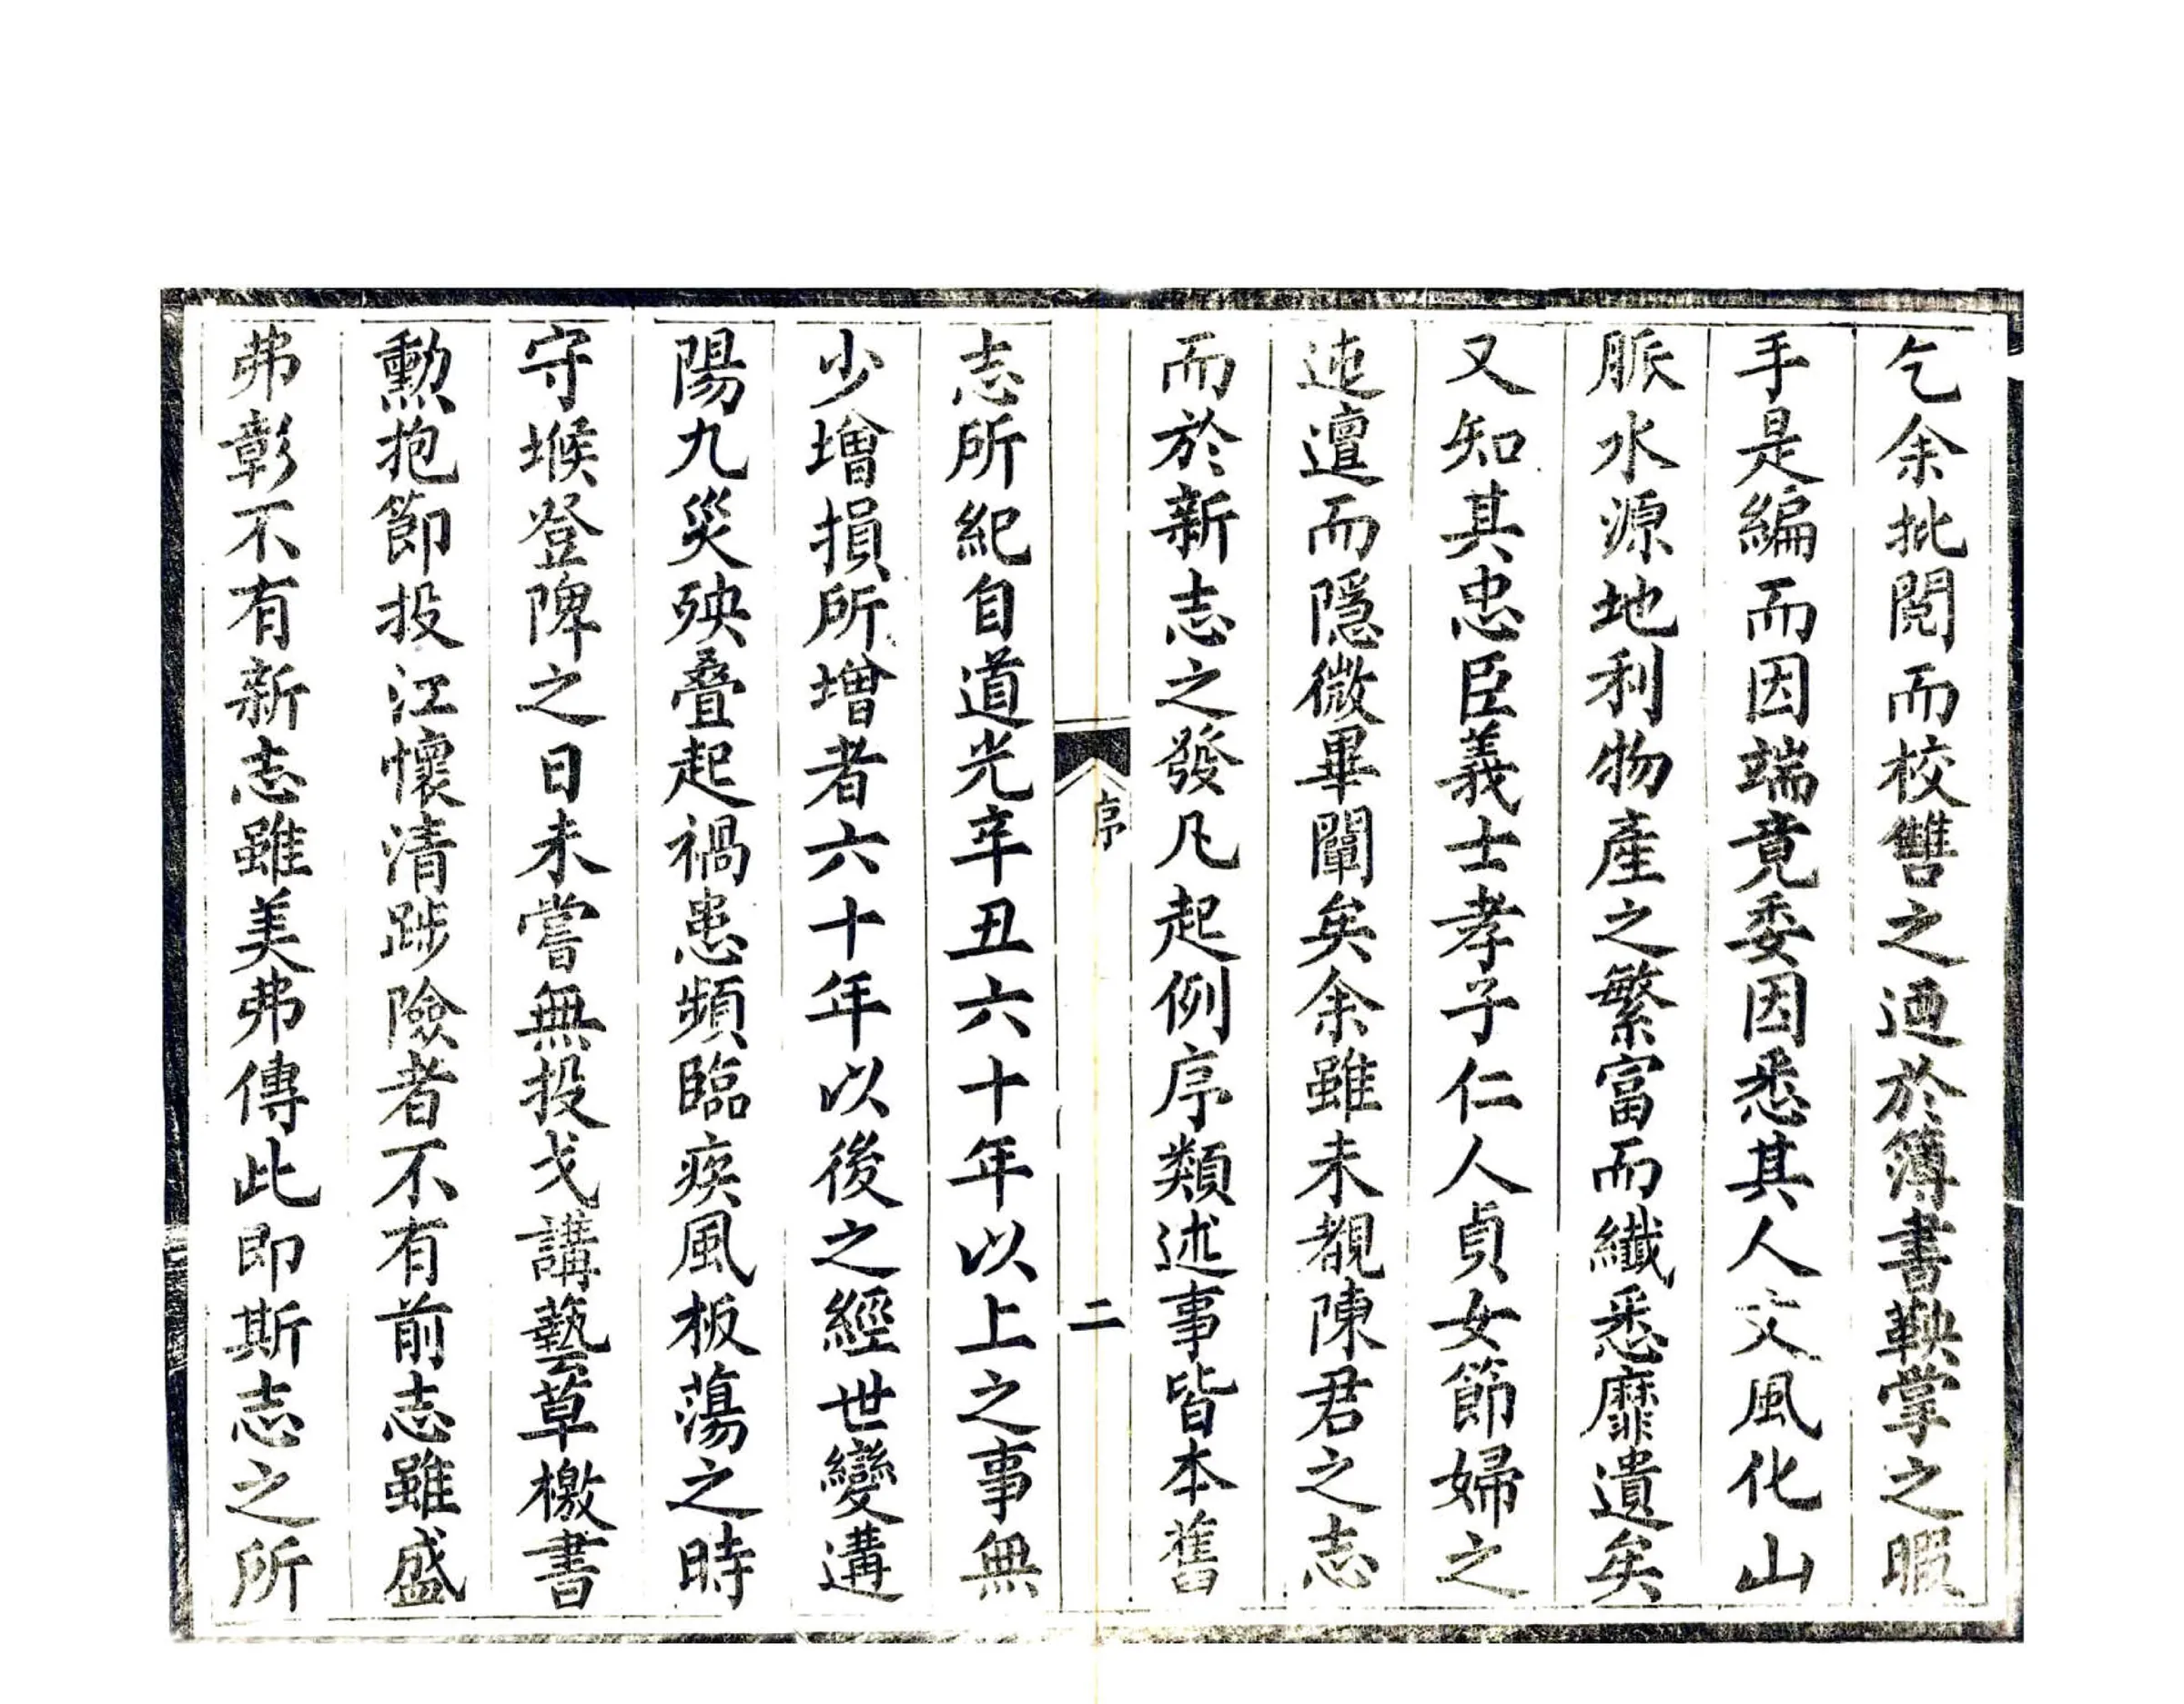 乞余批閱而校讐之迺於簿書鞅掌之暇
手是編而因端竟委因悉其人文風化山
脈水源地利物產之繁富而纖悉靡遺矣
又知其忠臣義士孝子仁人貞女節婦之
迍邅而隱微畢闡矣余雖未覩陳君之志
而於新志之發凡起例序類述事皆本舊
序
二
志所紀自道光辛丑六十年以上之事無
少增損所增者六十年以後之經世變遘
陽九災殃疊起禍患頻臨疾風板蕩之時
守堠登陴之日未嘗無投戈講藝草檄書
勳抱節投江懷清踄險者不有前志雖盛
弗彰不有新志雖美弗傳此即斯志之所